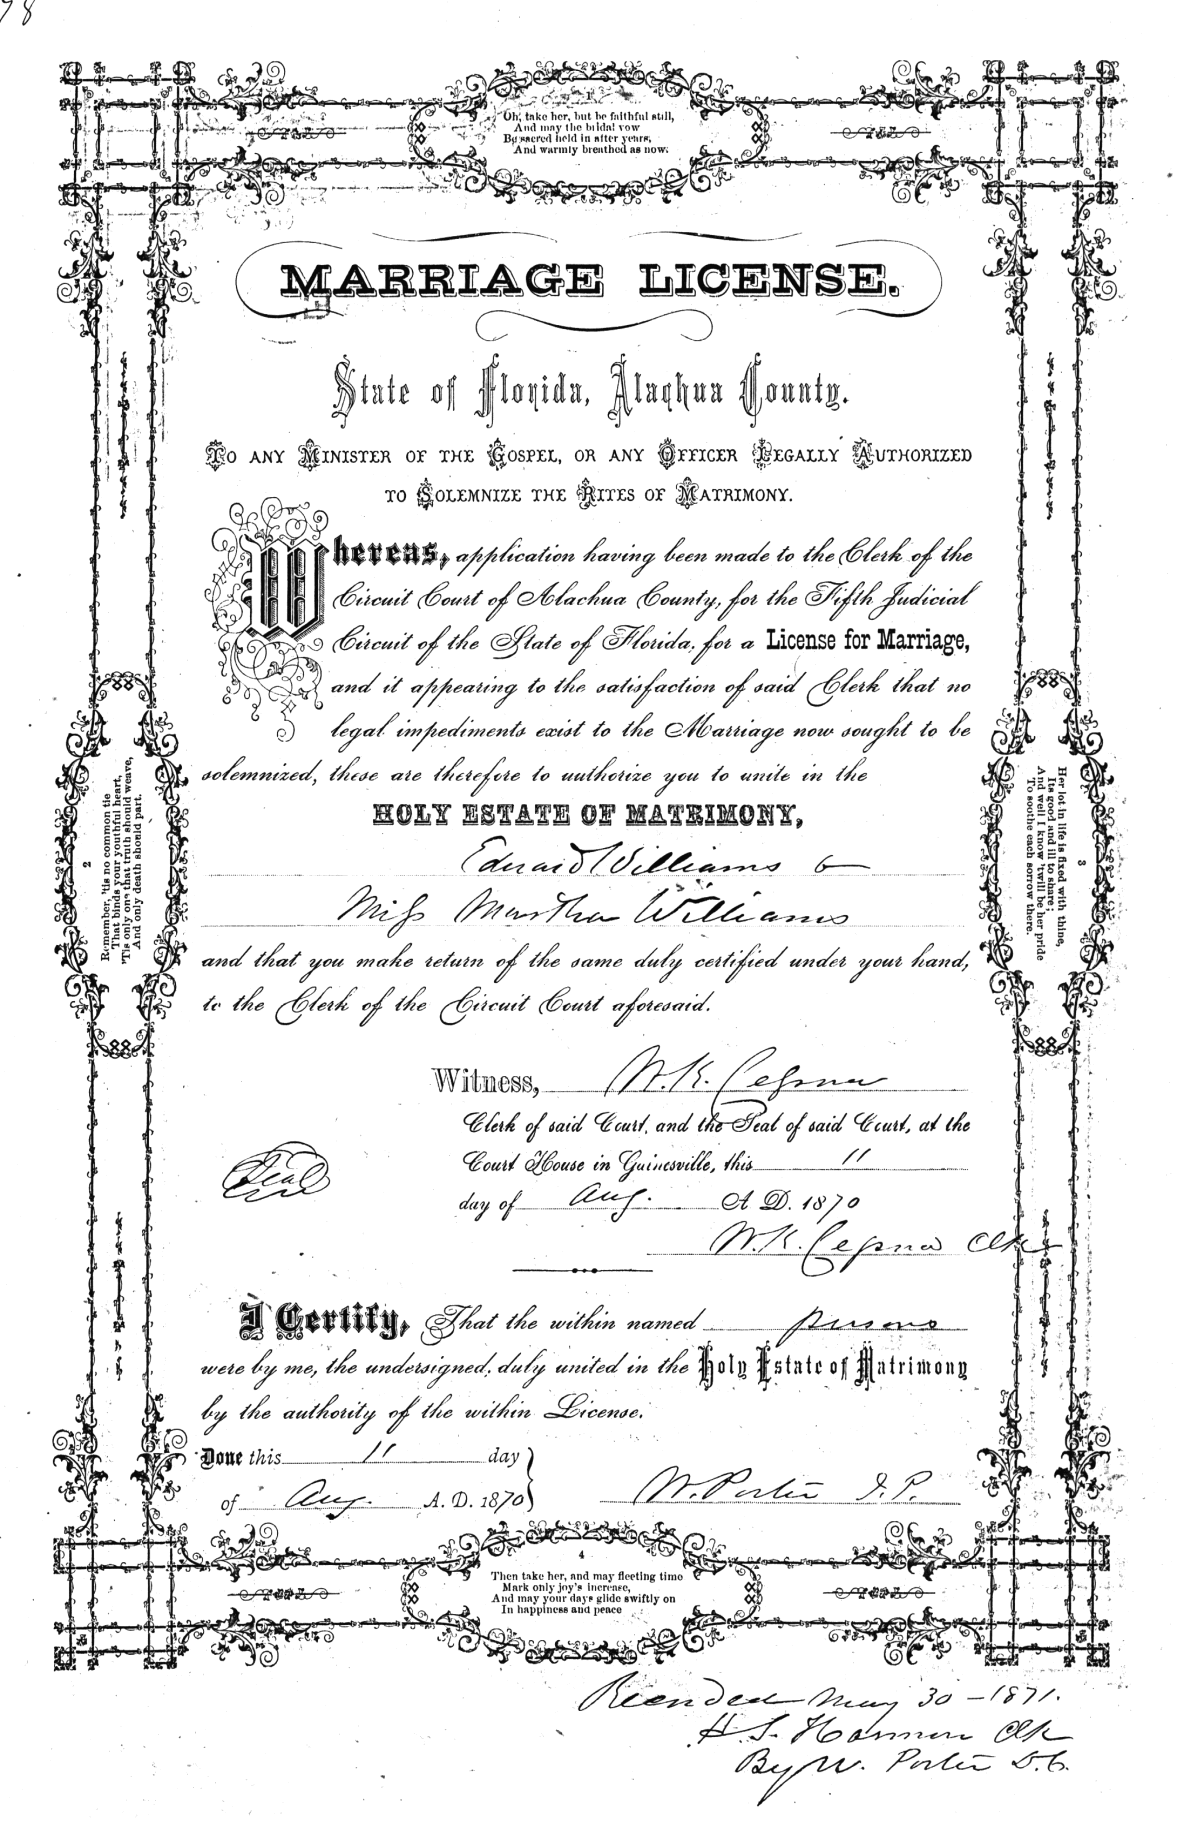 98
Oh, take her, but be faithful still,
And may the bridal vow
Be sacred held in after years,
And warmly breathed as now.
MARRIAGE LICENSE.
State of Florida, Alachua County.
TO ANY MINISTER OF THE GOSPEL, OR ANY OFFICER LEGALLY AUTHORIZED
TO SOLEMNIZE THE RITES OF MATRIMONY.
Whereas, application having been made to the Clerk of the
Circuit Court of Alachua County, for the Fifth Judicial
Circuit of the State of Florida, for a License for Marriage,
and it appearing to the satisfaction of said Clerk that no
legal impediments exist to the Marriage now sought to be
solemnized, these are therefore to authorize you to unite in the
HOLY ESTATE OF MATRIMONY,
Edward Williams &
Miss Martha Williams
and that you make return of the same duly certified under your hand,
to the Clerk of the Circuit Court aforesaid.
2
Remember, 'tis no common tie
That binds your youthful heart,
'Tis only one that truth should weave,
And only death should part.
3
Her lot in life is fixed with thine,
Its good and ill to share;
And well I know 'twill be her pride
To soothe each sorrow there.
Witness, W. K. Cessna
Clerk of said Court, and the Seal of said Court, at the
Court House in Gainesville, this 11
day of Aug. A D. 1870
Seal
W. K. Cessna Clk
I Certify, That the within named persons
were by me, the undersigned, duly united in the Holy Estate of Matrimony
by the authority of the within License.
Done this 11 day
of Aug. A. D. 1870
W. Porter J. P.
4
Then take her, and may fleeting time
Mark only joy's increase,
And may your days glide swiftly on
In happiness and peace
Recorded May 30 - 1871.
H. S. Harmon Clk
By W. Porter D.C.